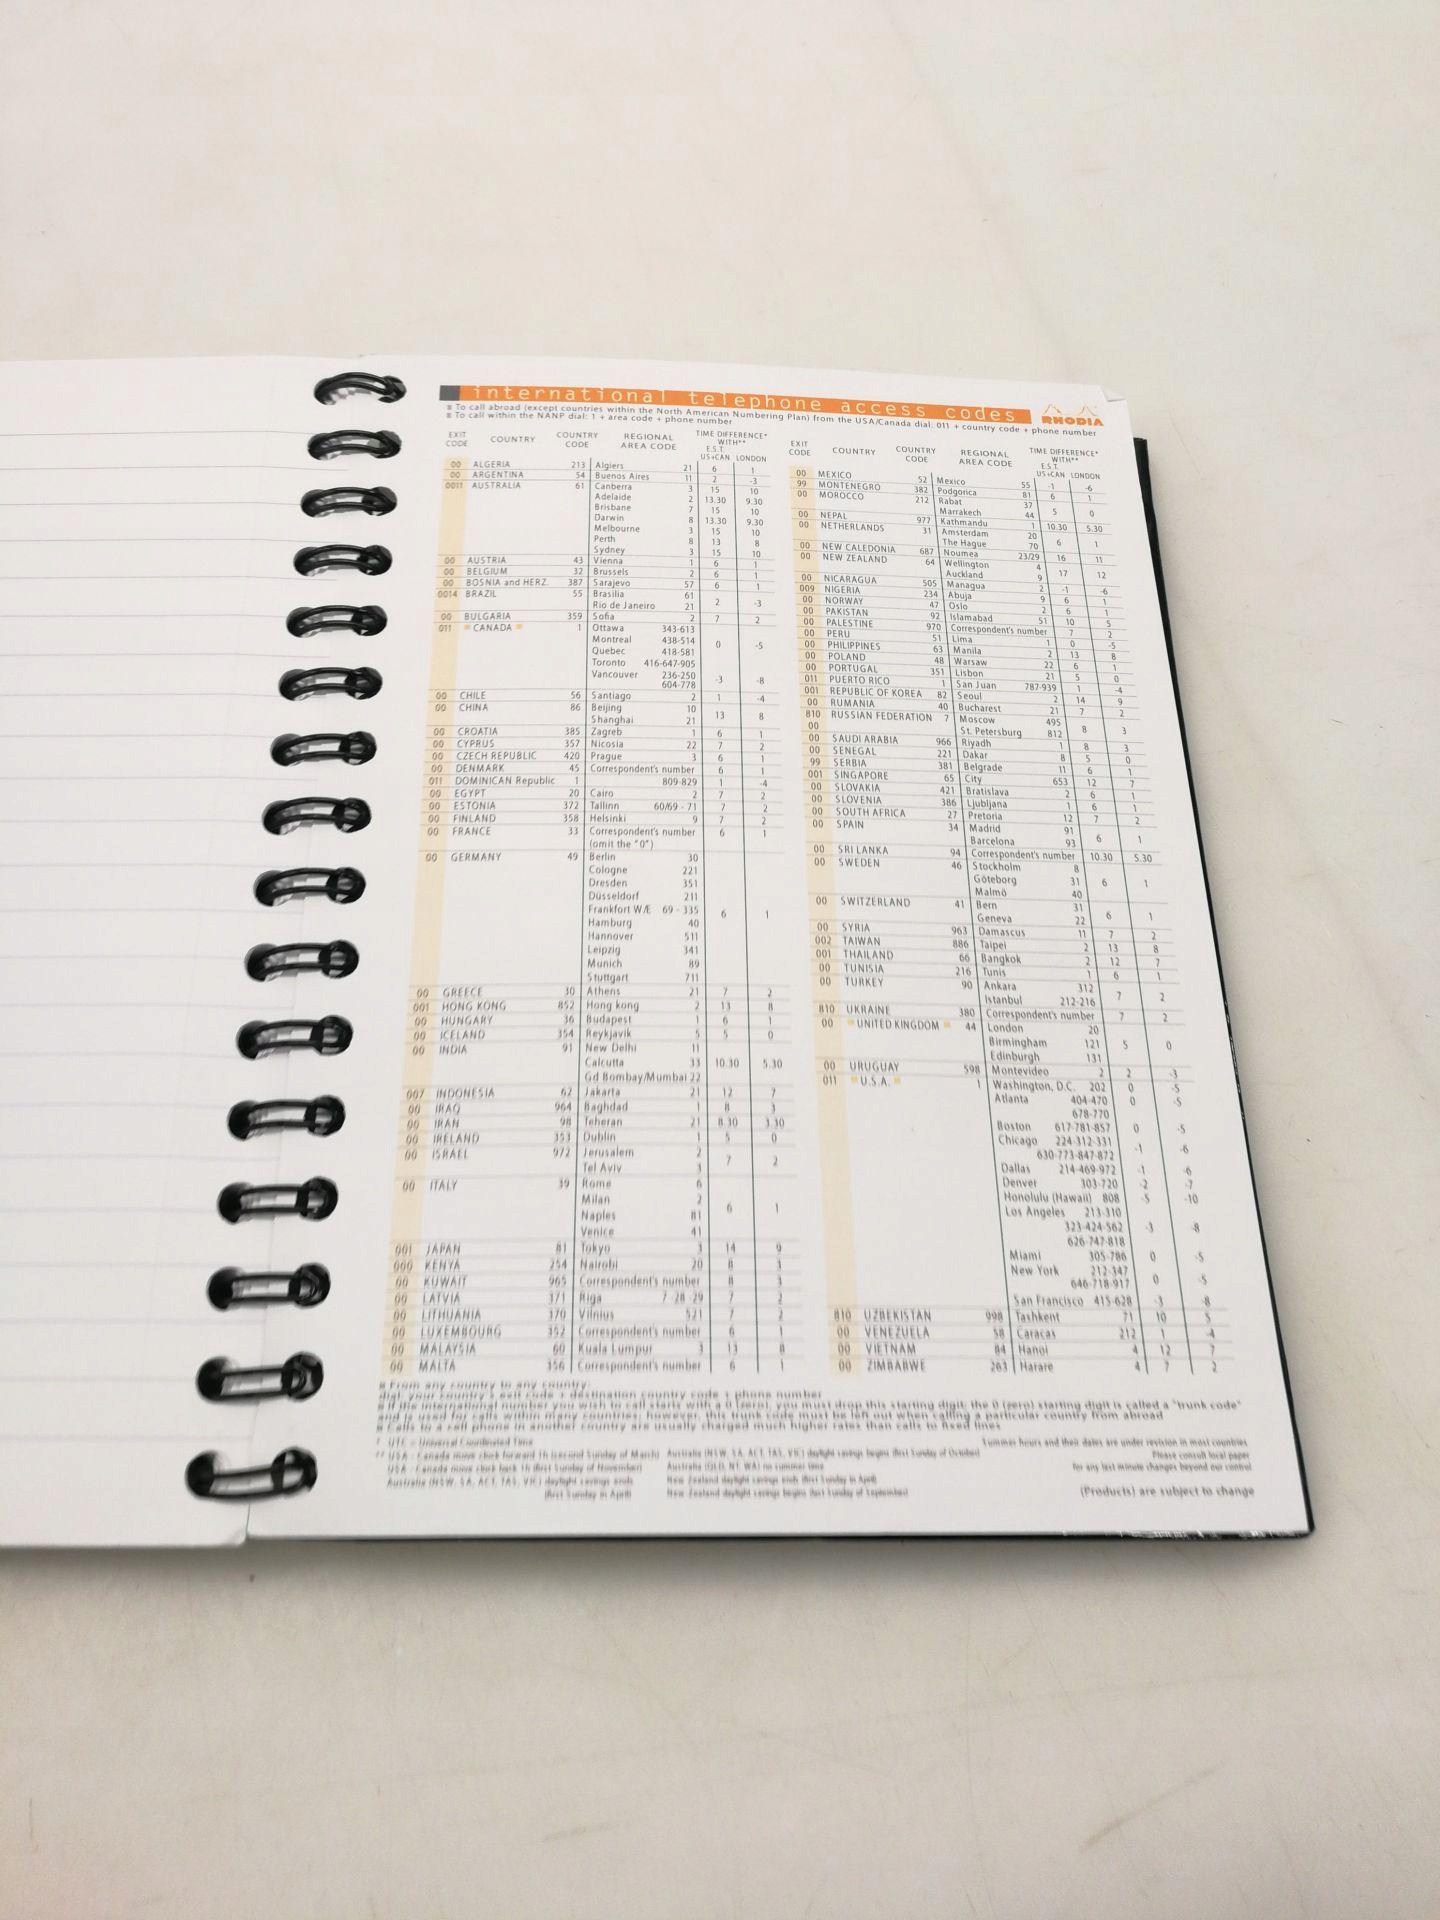 international telephone access codes
RHODIA
To call abroad (except countries within the North American Numbering Plan) from the USA/Canada dial: 011 + country code + phone number
To call within the NANP dial: 1 + area code + phone number
EXIT CODE COUNTRY COUNTRY CODE REGIONAL AREA CODE TIME DIFFERENCE* WITH** E.S.T. US+CAN LONDON
00 ALGERIA 213 Algiers 21 6 1
00 ARGENTINA 54 Buenos Aires 11 2 -3
0011 AUSTRALIA 61 Canberra 3 15 10
Adelaide 2 13.30 9.30
Brisbane 7 15 10
Darwin 8 13.30 9.30
Melbourne 3 15 10
Perth 8 13 8
Sydney 3 15 10
00 AUSTRIA 43 Vienna 1 6 1
00 BELGIUM 32 Brussels 2 6 1
00 BOSNIA and HERZ. 387 Sarajevo 57 6 1
0014 BRAZIL 55 Brasilia 61
Rio de Janeiro 21 2 -3
00 BULGARIA 359 Sofia 2 7 2
011 CANADA 1 Ottawa 343-613
Montreal 438-514 0 -5
Quebec 418-581
Toronto 416-647-905
Vancouver 236-250 -3 -8
604-778
00 CHILE 56 Santiago 2 1 -4
00 CHINA 86 Beijing 10 13 8
Shanghai 21
00 CROATIA 385 Zagreb 1 6 1
00 CYPRUS 357 Nicosia 22 7 2
00 CZECH REPUBLIC 420 Prague 3 6 1
00 DENMARK 45 Correspondent's number 6 1
011 DOMINICAN Republic 1 809-829 1 -4
00 EGYPT 20 Cairo 2 7 2
00 ESTONIA 372 Tallinn 60/69 - 71 7 2
00 FINLAND 358 Helsinki 9 7 2
00 FRANCE 33 Correspondent's number 6 1
(omit the "0")
00 GERMANY 49 Berlin 30
Cologne 221
Dresden 351
Düsseldorf 211
Frankfort W/E 69 - 335 6 1
Hamburg 40
Hannover 511
Leipzig 341
Munich 89
Stuttgart 711
00 GREECE 30 Athens 21 7 2
001 HONG KONG 852 Hong kong 2 13 8
00 HUNGARY 36 Budapest 1 6 1
00 ICELAND 354 Reykjavik 5 5 0
00 INDIA 91 New Delhi 11
Calcutta 33 10.30 5.30
Gd Bombay/Mumbai 22
007 INDONESIA 62 Jakarta 21 12 7
00 IRAQ 964 Baghdad 1 8 3
00 IRAN 98 Teheran 21 8.30 3.30
00 IRELAND 353 Dublin 1 5 0
00 ISRAEL 972 Jerusalem 2 7 2
Tel Aviv 3
00 ITALY 39 Rome 6
Milan 2 6 1
Naples 81
Venice 41
001 JAPAN 81 Tokyo 3 14 9
000 KENYA 254 Nairobi 20 8 3
00 KUWAIT 965 Correspondent's number 8 3
00 LATVIA 371 Riga 7 -28 -29 7 2
00 LITHUANIA 370 Vilnius 521 7 2
00 LUXEMBOURG 352 Correspondent's number 6 1
00 MALAYSIA 60 Kuala Lumpur 3 13 8
00 MALTA 356 Correspondent's number 6 1
EXIT CODE COUNTRY COUNTRY CODE REGIONAL AREA CODE TIME DIFFERENCE* WITH** E.S.T. US+CAN LONDON
00 MEXICO 52 Mexico 55 -1 -6
99 MONTENEGRO 382 Podgorica 81 6 1
00 MOROCCO 212 Rabat 37 5 0
Marrakech 44
00 NEPAL 977 Kathmandu 1 10.30 5.30
00 NETHERLANDS 31 Amsterdam 20 6 1
The Hague 70
00 NEW CALEDONIA 687 Noumea 23/29 16 11
00 NEW ZEALAND 64 Wellington 4 17 12
Auckland 9
00 NICARAGUA 505 Managua 2 -1 -6
009 NIGERIA 234 Abuja 9 6 1
00 NORWAY 47 Oslo 2 6 1
00 PAKISTAN 92 Islamabad 51 10 5
00 PALESTINE 970 Correspondent's number 7 2
00 PERU 51 Lima 1 0 -5
00 PHILIPPINES 63 Manila 2 13 8
00 POLAND 48 Warsaw 22 6 1
00 PORTUGAL 351 Lisbon 21 5 0
011 PUERTO RICO 1 San Juan 787-939 1 -4
001 REPUBLIC OF KOREA 82 Seoul 2 14 9
00 RUMANIA 40 Bucharest 21 7 2
810 RUSSIAN FEDERATION 7 Moscow 495 8 3
St. Petersburg 812
00 SAUDI ARABIA 966 Riyadh 1 8 3
00 SENEGAL 221 Dakar 8 5 0
99 SERBIA 381 Belgrade 11 6 1
001 SINGAPORE 65 City 653 12 7
00 SLOVAKIA 421 Bratislava 2 6 1
00 SLOVENIA 386 Ljubljana 1 6 1
00 SOUTH AFRICA 27 Pretoria 12 7 2
00 SPAIN 34 Madrid 91 6 1
Barcelona 93
00 SRI LANKA 94 Correspondent's number 10.30 5.30
00 SWEDEN 46 Stockholm 8
Göteborg 31 6 1
Malmö 40
00 SWITZERLAND 41 Bern 31 6 1
Geneva 22
00 SYRIA 963 Damascus 11 7 2
002 TAIWAN 886 Taipei 2 13 8
001 THAILAND 66 Bangkok 2 12 7
00 TUNISIA 216 Tunis 1 6 1
00 TURKEY 90 Ankara 312 7 2
Istanbul 212-216
810 UKRAINE 380 Correspondent's number 7 2
00 UNITED KINGDOM 44 London 20
Birmingham 121 5 0
Edinburgh 131
00 URUGUAY 598 Montevideo 2 2 -3
011 U.S.A. 1 Washington, D.C. 202 0 -5
Atlanta 404-470 0 -5
678-770
Boston 617-781-857 0 -5
Chicago 224-312-331 -1 -6
630-773-847-872
Dallas 214-469-972 -1 -6
Denver 303-720 -2 -7
Honolulu (Hawaii) 808 -5 -10
Los Angeles 213-310
323-424-562 -3 -8
626-747-818
Miami 305-786 0 -5
New York 212-347 0 -5
646-718-917
San Francisco 415-628 -3 -8
810 UZBEKISTAN 998 Tashkent 71 10 5
00 VENEZUELA 58 Caracas 212 1 -4
00 VIETNAM 84 Hanoi 4 12 7
00 ZIMBABWE 263 Harare 4 7 2
From any country to any country:
dial your country's exit code + destination country code + phone number
If the international number you wish to call starts with a 0 (zero), you must drop this starting digit; the 0 (zero) starting digit is called a "trunk code"
and is used for calls within many countries; however, this trunk code must be left out when calling a particular country from abroad
Calls to a cell phone in another country are usually charged much higher rates than calls to fixed lines
* UTC = Universal Coordinated Time
** USA - Canada move clock forward 1h (second Sunday of March)
USA - Canada move clock back 1h (first Sunday of November)
Australia (NSW, SA, ACT, TAS, VIC) daylight savings ends
(first Sunday in April)
Australia (NSW, SA, ACT, TAS, VIC) daylight savings begins (first Sunday of October)
Australia (QLD, NT, WA) no summer time
New Zealand daylight savings ends (first Sunday in April)
New Zealand daylight savings begins (last Sunday of September)
Summer hours and their dates are under revision in most countries
Please consult local paper
for any last minute changes beyond our control
(Products) are subject to change